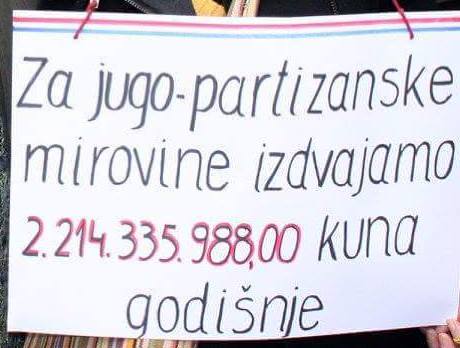 Za jugo-partizanske
mirovine izdvajamo
2.214.335.988,00 kuna
godišnje